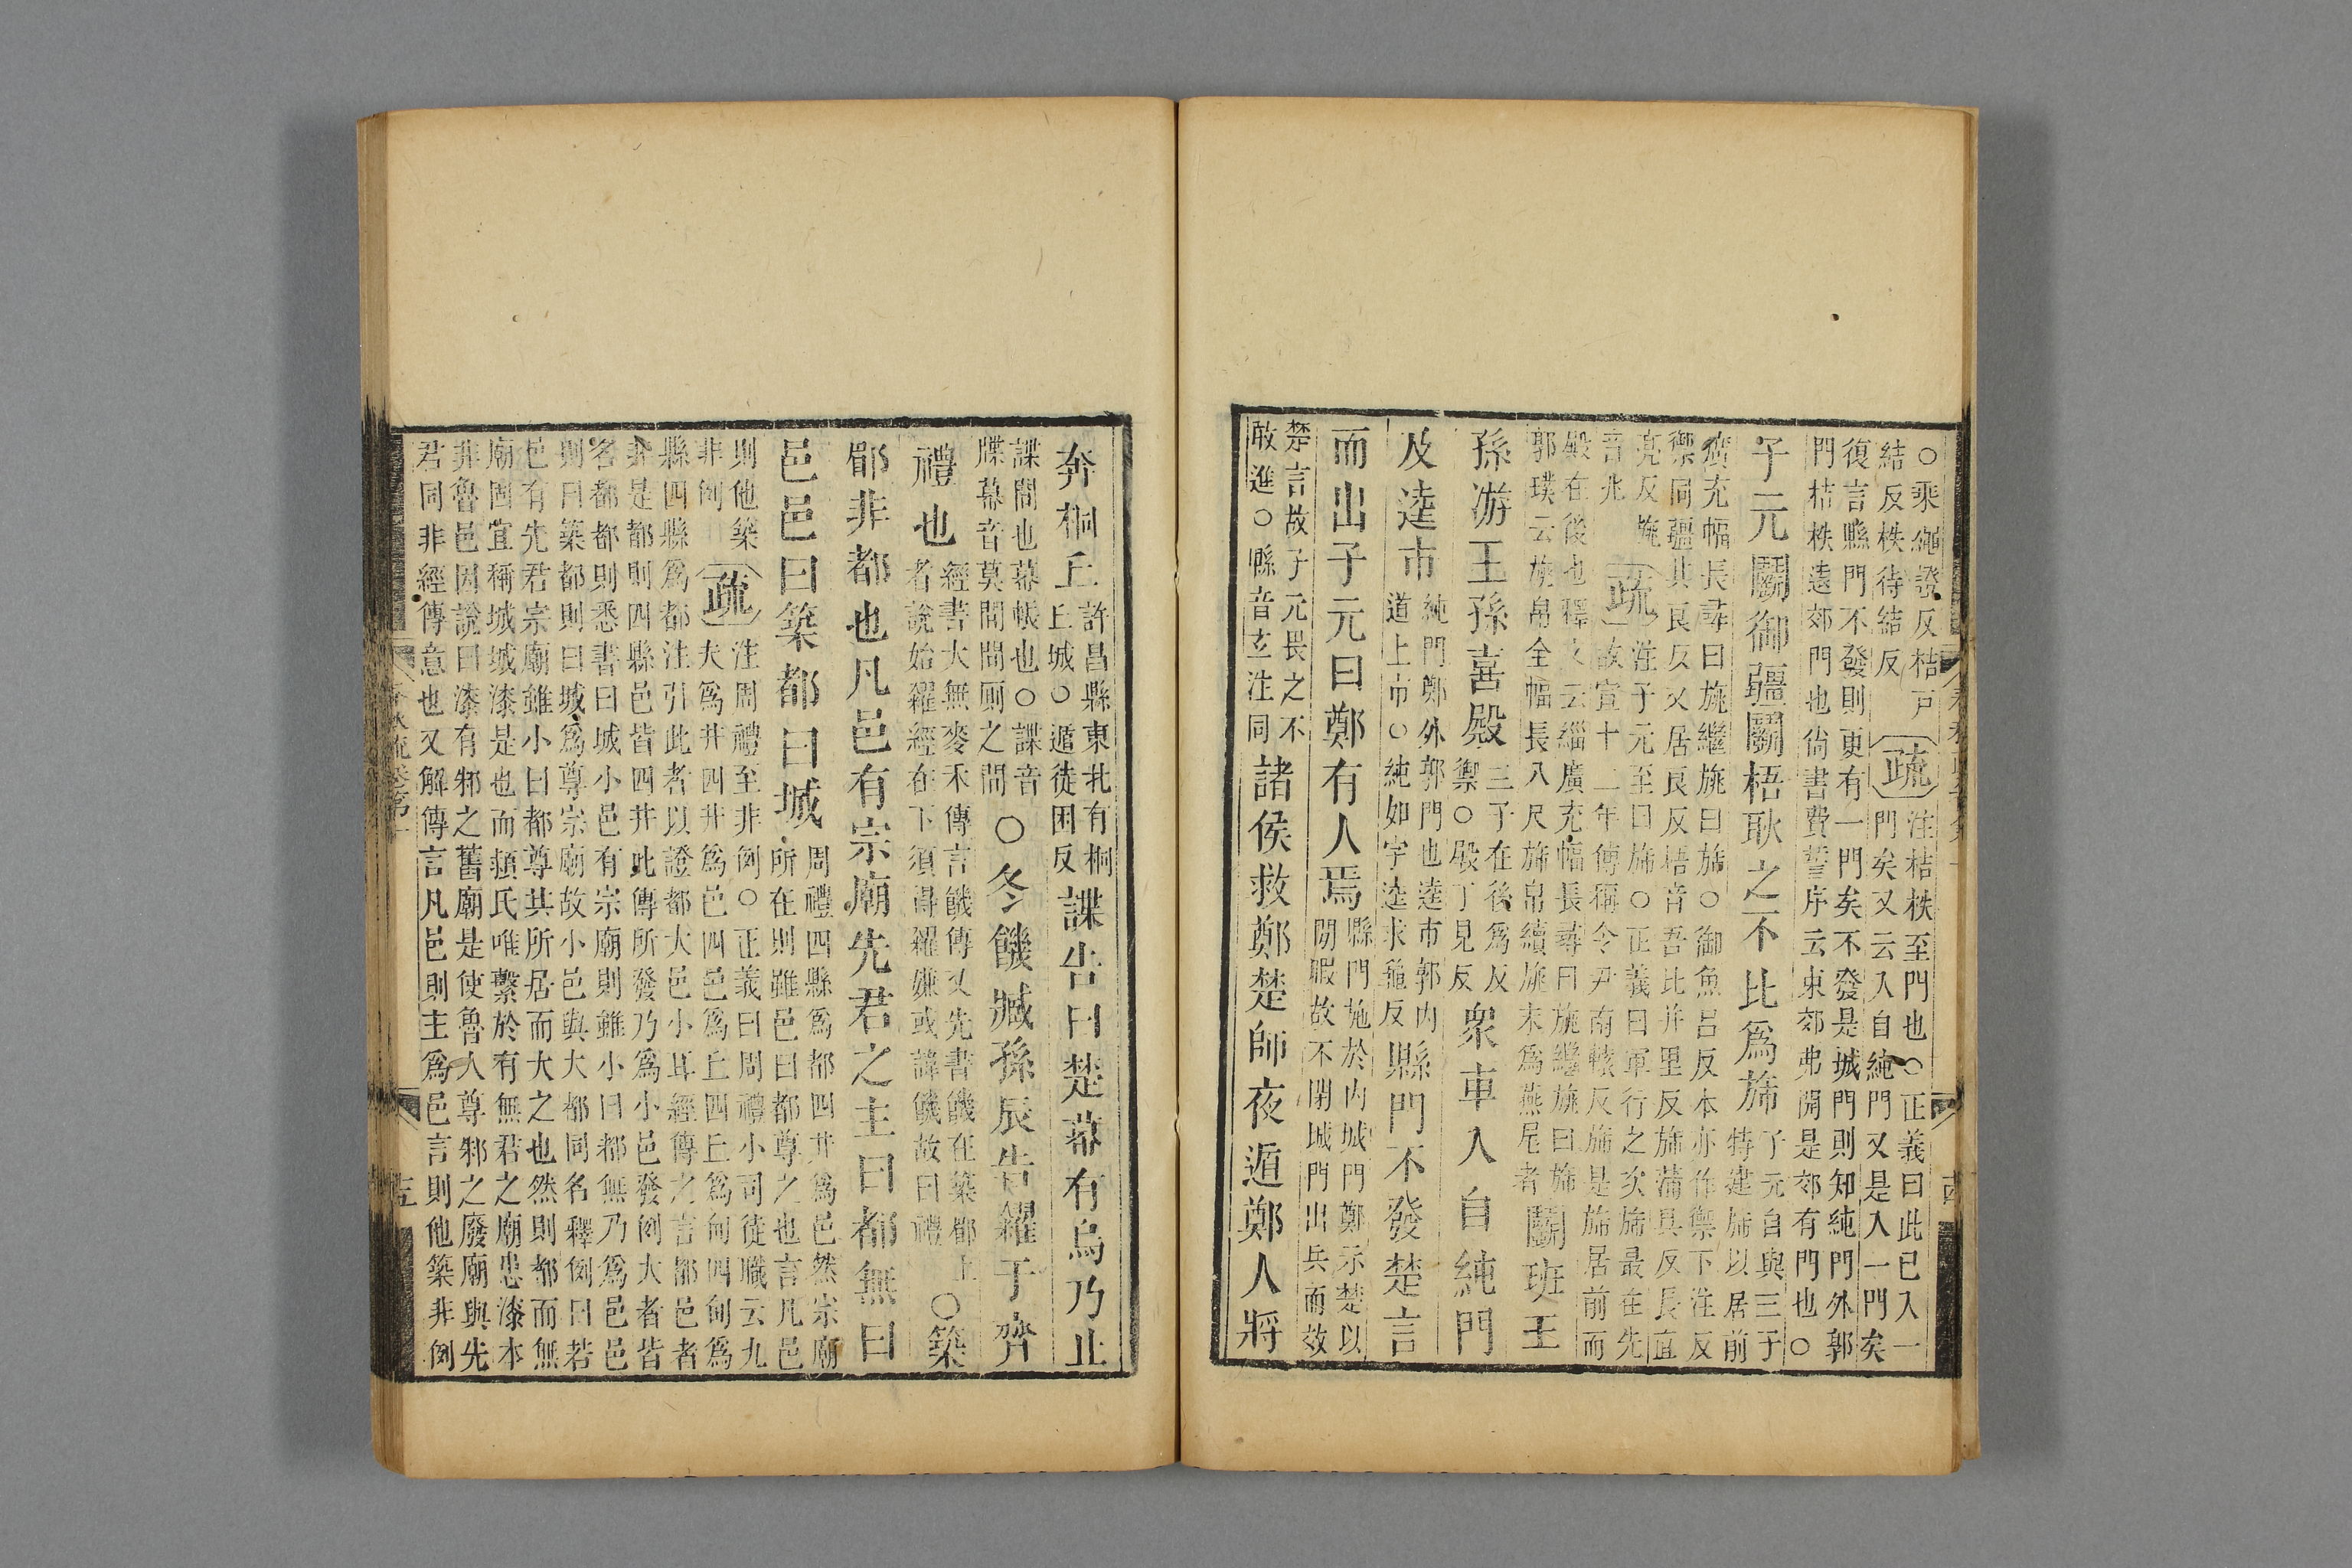 ○乘繩證反桔戶
結反柣待結反
疏
注桔柣至門也○正義曰此已入一
門矣又云入自純門又是入一門矣
復言縣門不發則更有一門矣不發是城門則知純門外郭
門桔柣遠郊門也尚書費誓序云東郊弗開是郊有門也○
子元鬬御疆鬬梧耿之不比爲旆
子元自與三子
特建旆以居前
廣充幅長尋曰旐繼旐曰旆○御魚呂反本亦作禦下注反
禦同疆其良反又居良反梧音吾比并里反旆蒲具反長直
亮反旐
音兆
疏
注子元至曰旆○正義曰軍行之次旆最在先
故宣十二年傳稱令尹南轅反旆是旆居前而
殿在後也釋文云緇廣充幅長尋曰旐繼旐曰旆
郭璞云旐帛全幅長八尺旆帛續旐末爲燕尾者
鬬班王
孫游王孫喜殿
三子在後爲反
禦○殿丁見反
衆車入自純門
及逵市
純門鄭外郭門也逵市郭內
道上市○純如字逵求龜反
縣門不發楚言
而出子元曰鄭有人焉
縣門施於內城門鄭示楚以
閒暇故不閉城門出兵而效
楚言故子元畏之不
敢進○縣音玄注同
諸侯救鄭楚師夜遁鄭人將
奔桐丘
許昌縣東北有桐
丘城○遁徒困反
諜告曰楚幕有烏乃止
諜間也幕帳也○諜音
牒幕音莫間間厠之間
○冬饑臧孫辰告糴于齊
禮也
經書大無麥禾傳言饑傳又先書饑在築郿上
者說始糴經在下須得糴嫌或諱饑故曰禮
○築
郿非都也凡邑有宗廟先君之主曰都無曰
邑邑曰築都曰城
周禮四縣爲都四井爲邑然宗廟
所在則雖邑曰都尊之也言凡邑
則他築
非例
疏
注周禮至非例○正義曰周禮小司徒職云九
夫爲井四井爲邑四邑爲丘四丘爲甸四甸爲
縣四縣爲都注引此者以證都大邑小耳經傳之言都邑者
非是都則四縣邑皆四井此傳所發乃爲小邑發例大者皆
名都都則悉書曰城小邑有宗廟則雖小曰都無乃爲邑邑
則曰築都則曰城爲尊宗廟故小邑與大都同名釋例曰若
邑有先君宗廟雖小曰都尊其所居而大之也然則都而無
廟固宜稱城城漆是也而頴氏唯繫於有無君之廟患漆本
非魯邑因說曰漆有邾之舊廟是使魯人尊邾之廢廟與先
君同非經傳意也又解傳言凡邑則主爲邑言則他築非例